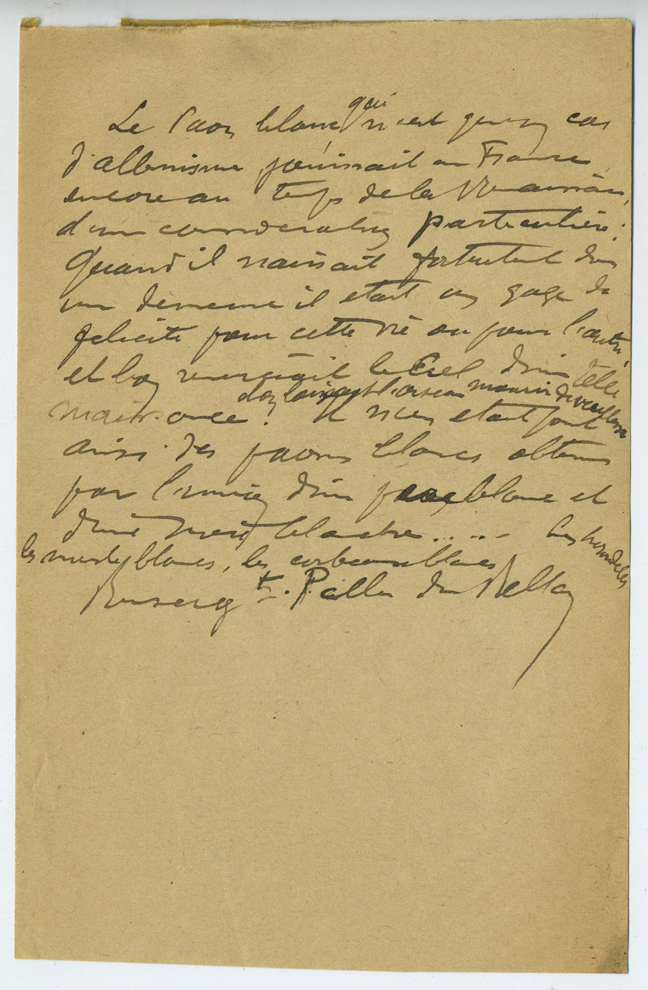 Le Paon blanc qui n'est qu'un cas
d'albinisme jouissait en France
encore au temps de la Renaissance
d'une considération particulière.
Quand il naissait fortuitement dans
un domaine il était un gage de
félicité pour cette vie ou pour l'autre
et l'on remerciait le Ciel d'une telle
l'oiseau mourir de vieillesse
Il n'en était pas
ainsi des paons blancs obtenus
par l'union d'un blanc et
d'une blanche..... Les hirondelles
les merles blancs, les corbeaux blancs